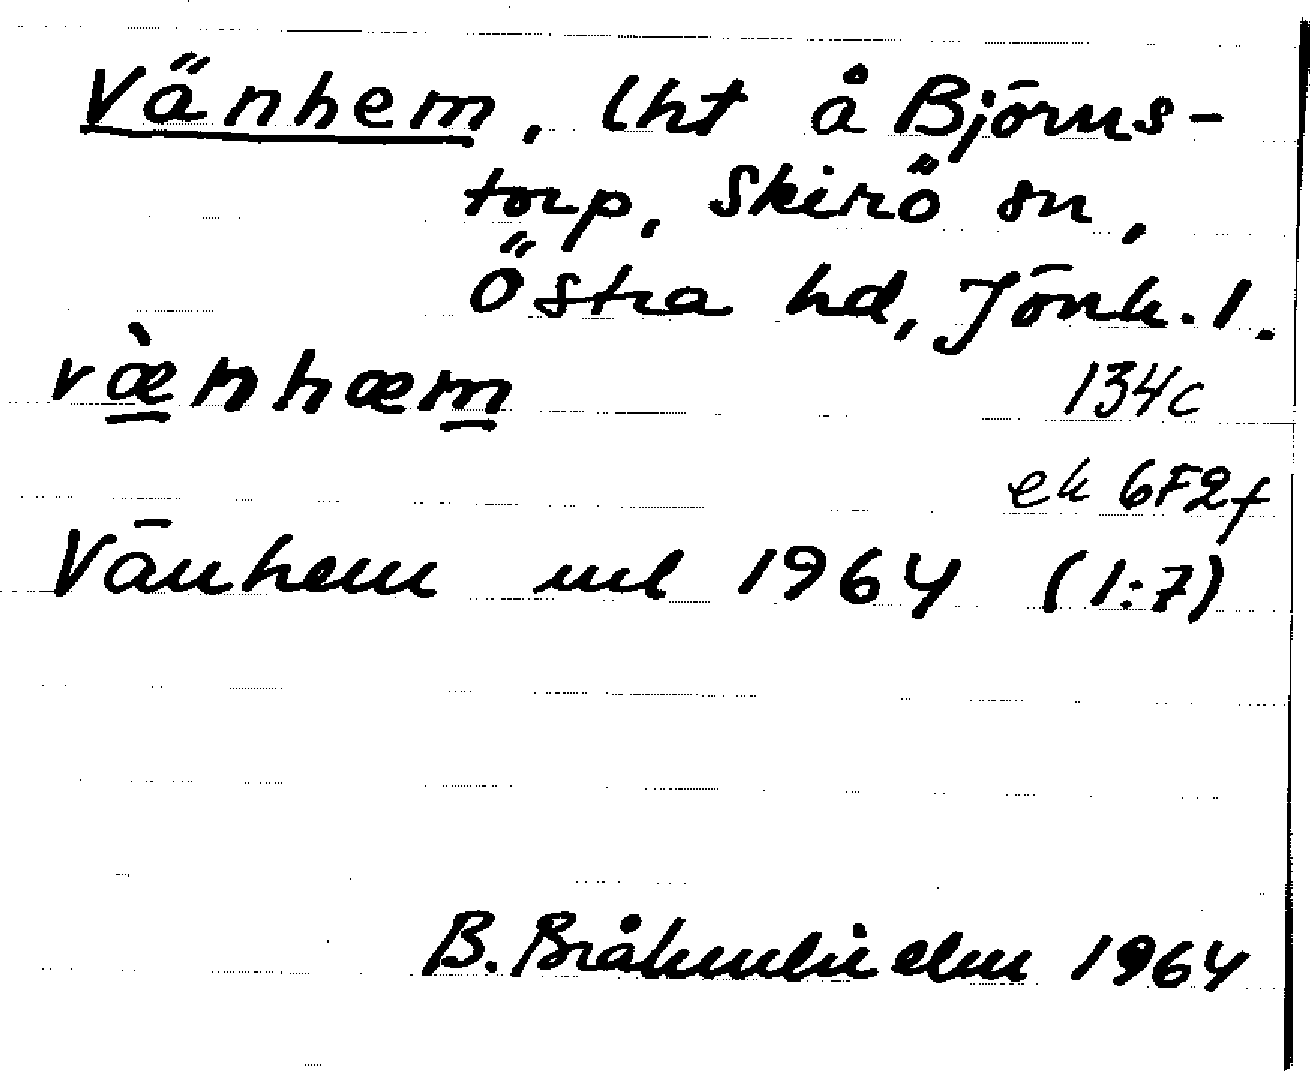 Vänhem, lht å Björns-
torp, Skirö sn,
Östra hd, Jönk. l.
væ̀nhæm
134c
ek 6F2f
Vänhem ml 1964 (1:7)
B. 1964